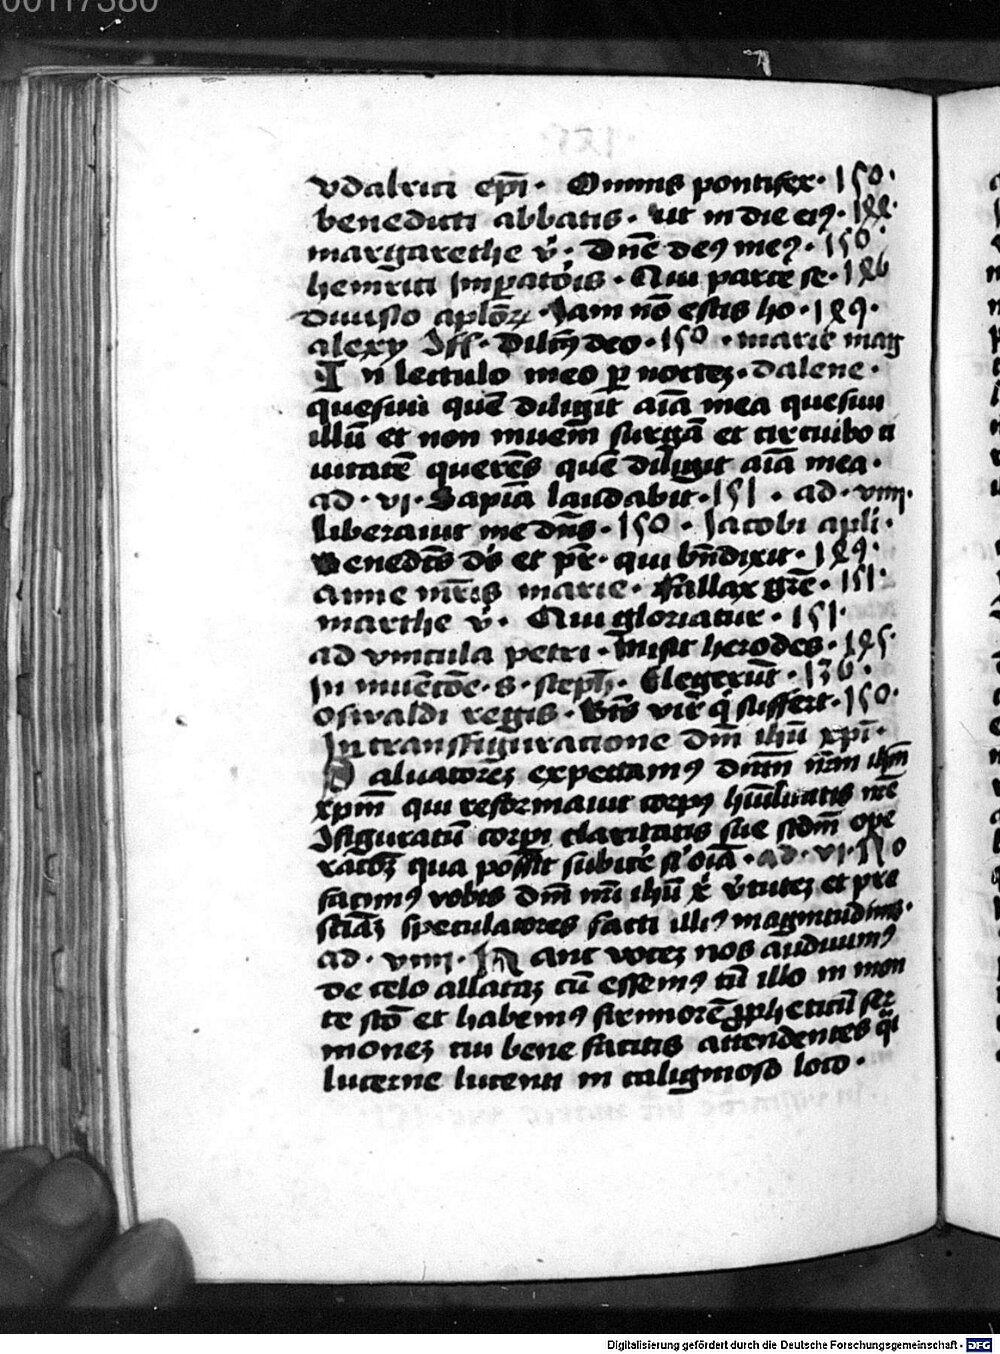 00117380
vdalrici epī · Omnis pontifex · 150 ·
benedicti abbatis · ut in die ei9 · 144 ·
margarethe v̄ · Dn̄e de9 me9 · 150 ·
heinrici Imꝑatōis · Qui parce se · 146
diuisio aplōꝝ · Iam nō estis ho · 149 ·
alexy 9ff · Dilc̄9 deo · 150 · marie mag
In lectulo meo ꝑ noctez · dalene ·
quesiui quē diligit aīa mea quesiui
illū et non inuenī surgā et circuibo ci
uitatē querēs quē diligit aīa mea ·
ad · vi · Sapīa laudabit · 151 · ad · viiij ·
liberauit me dn̄s · 150 · Iacobi apli ·
Benedc̄s d̄s et pr̄ · qui bn̄dixit · 149 ·
anne mr̄is marie · Fallax gr̄e · 151 ·
marthe v̄ · Qui gloriatur · 151 ·
ad vincula petri · Misit herodes · 145 ·
In inuēcōe · s · steph̄ · Elegerūt · 136 ·
oswaldi regis · Bt̄s vir q̇ suffert · 150 ·
In transfiguracione dn̄i ihū xpī ·
Saluatorēz expectam9 dn̄m nr̄m ihm̄
xpm̄ qui reformauit corp9 hūilitatis nr̄e
9figuratū corpi claritatis sue scdm̄ ope
racōz qua possit subic̄e s̄ oīa · ad · vi · 150
facim9 vobis dn̄i nr̄i ihū x̄ v̄tutez et pre
sciāz speculatores facti illi9 magnitudinis ·
ad · viiij · Hanc vocez nos audiuim9
de celo allataz cū essem9 cū illo in mon
te sc̄o et habem9 firmiorē ꝓpheticū ser
monez cui bene facitis attendentes q̄i
lucerne lucenti in caliginoso loco ·
Digitalisierung gefördert durch die Deutsche Forschungsgemeinschaft - DFG